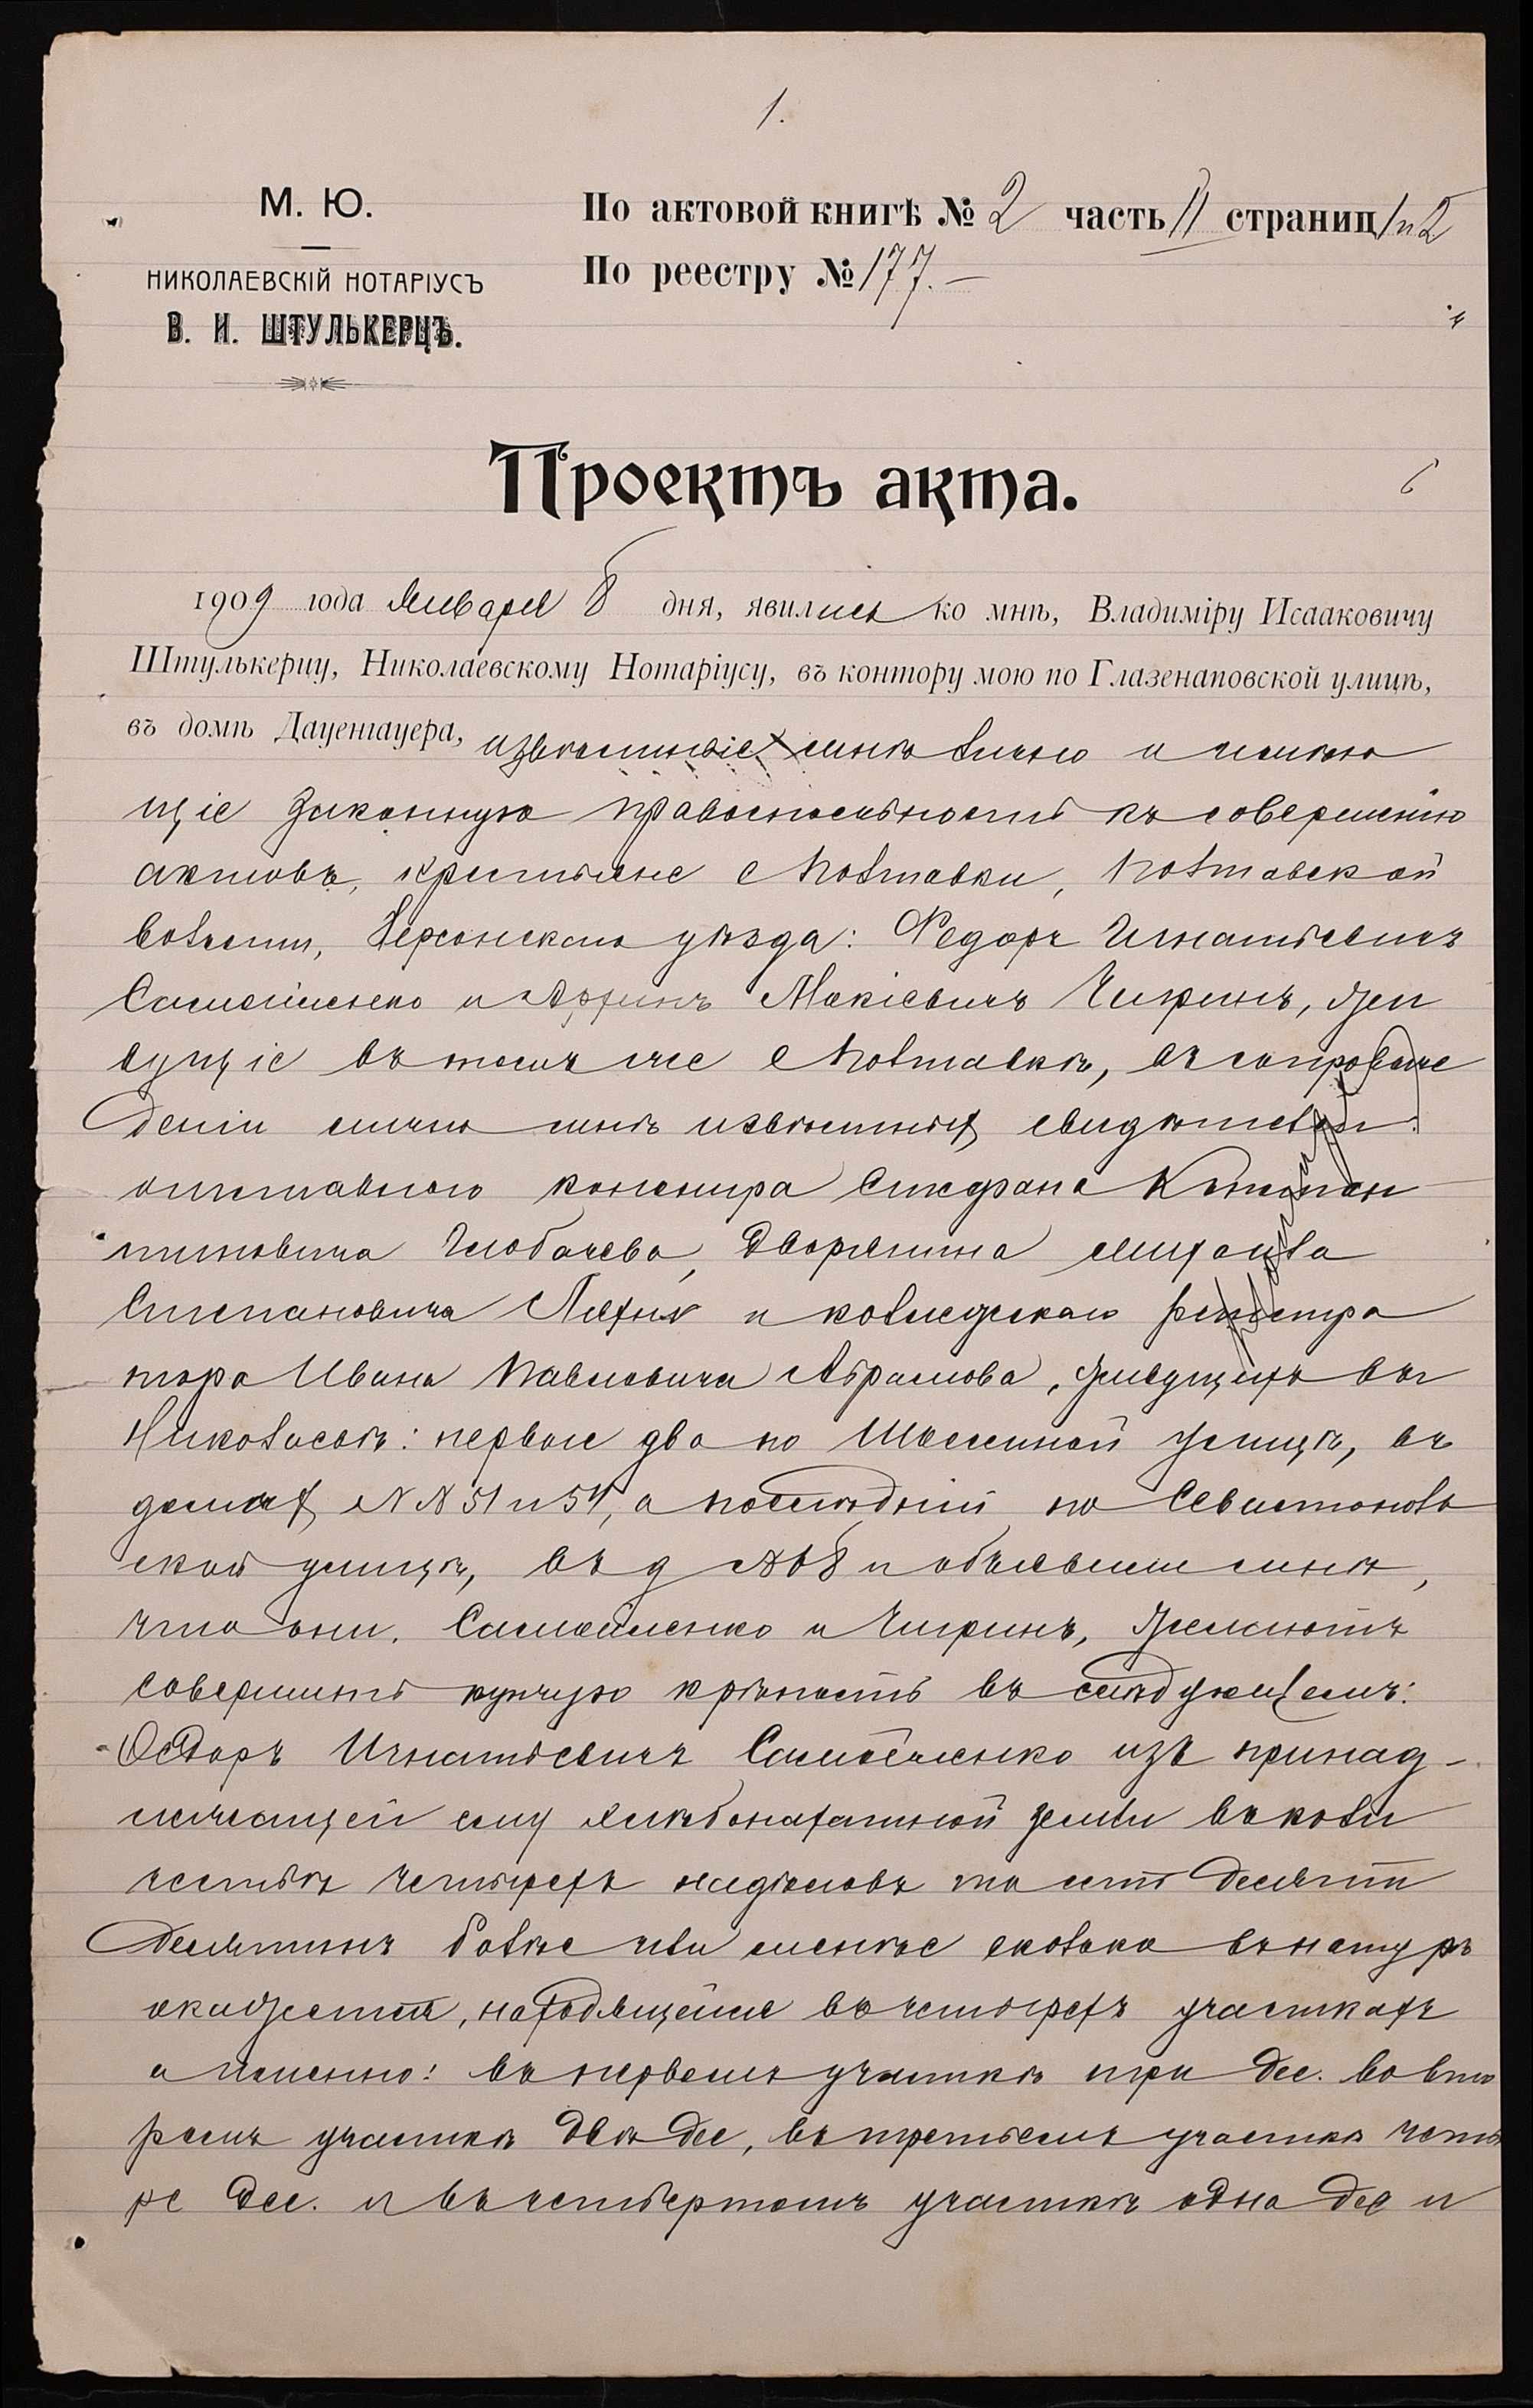 1.
М. Ю.
НИКОЛАЕВСКІЙ НОТАРІУСЪ
В. И. ШТУЛЬКЕРЦЪ.
По актовой книгѣ № 2 часть II страниц 1 и 2
По реестру № 177.—
Проектъ акта.
1909 года Января 8 дня, явились ко мнѣ, Владиміру Исааковичу
Штулькерцу, Николаевскому Нотаріусу, въ контору мою по Глазенаповской улицѣ,
въ домѣ Дауенгауера, извѣстные мнѣ лично и имѣю
щіе законную правоспособность къ совершенію
актовъ, крестьяне с Полтавки, Полтавской
волости, Херсонскаго уѣзда: Федоръ Игнатьевичъ
Самойленко и Мокіевичъ Чиринъ, жи
вущіе въ томъ же с Полтавкѣ, въ сопровож
деніи лично мнѣ извѣстныхъ свидѣтелей:
отставного Стефана Констан
тиновича дворянина Михаила
Степановича и коллежскаго регистра
тора Ивана Павловича Абрамова, живущихъ въ
Николаевѣ: первые два по улицѣ, въ
домахъ №№ 51 и 54, а послѣдній по Севастополь
ской улицѣ, въ д № 68 и объявили мнѣ,
что они, Самойленко и Чиринъ, желаютъ
совершить купчую крѣпость въ слѣдующемъ:
Федоръ Игнатьевичъ Самойленко изъ принад-
лежащей ему земли въ коли
чествѣ четырехъ надѣловъ то есть десяти
десятинъ болѣе или менѣе сколько въ натурѣ
окажется, находящейся въ четырехъ участкахъ
а именно: въ первомъ участкѣ три дес. во вто
ромъ участкѣ двѣ дес, въ третьемъ участкѣ четы
ре дес. и въ четвертомъ участкѣ одна дес и